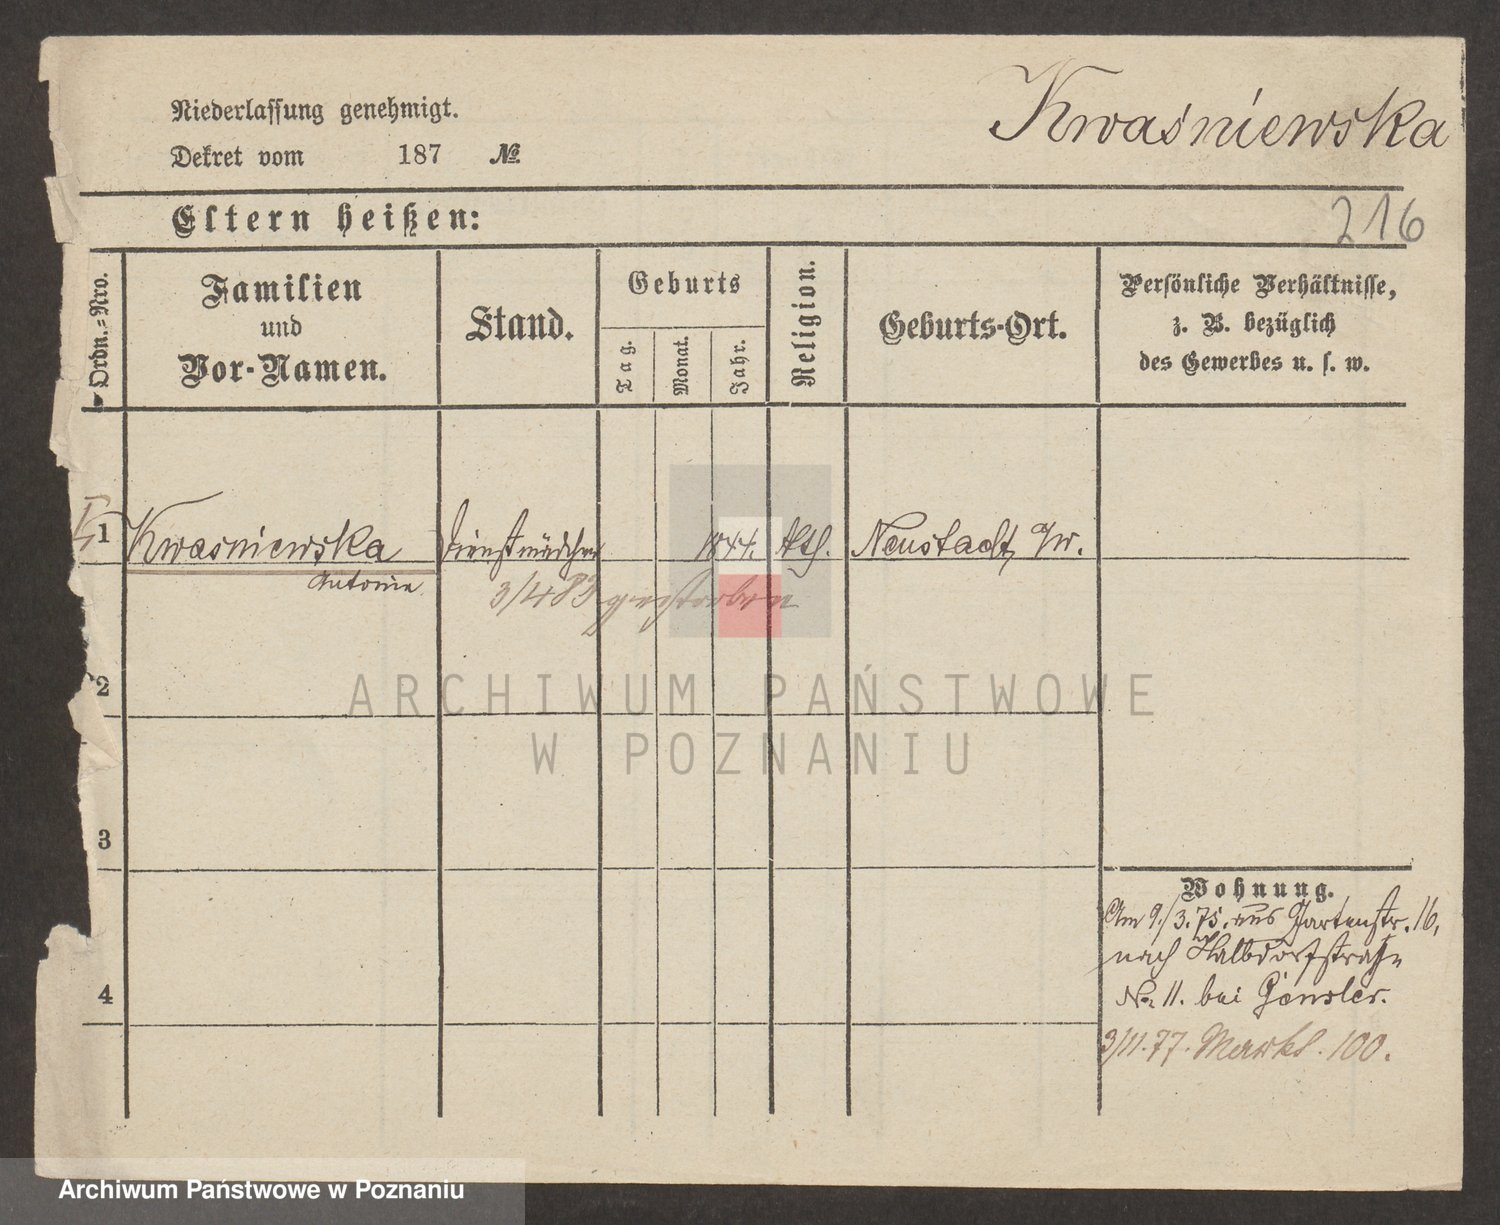 Kwaśniewska
Niederlassung genehmigt.
Dekret vom 187 №
216
Eltern heißen:
Ordn.=Nro.
Familien
und
Vor-Namen.
Stand.
Geburts
Tag.
Monat.
Jahr.
Religion.
Geburts-Ort.
Persönliche Verhältnisse,
z. B. bezüglich
des Gewerbes u. s. w.
1 Kwasniewska Dienstmädchen 1844. kth. Neustadt
Antonie
3/4 83 gestorben
2
3
4
Wohnung.
Am 9./3.75. aus Gartenstr. 16,
nach Halbdorfstraße
No 11. bei
3/11.77. Markt. 100.
ARCHIWUM PAŃSTWOWE
W POZNANIU
Archiwum Państwowe w Poznaniu